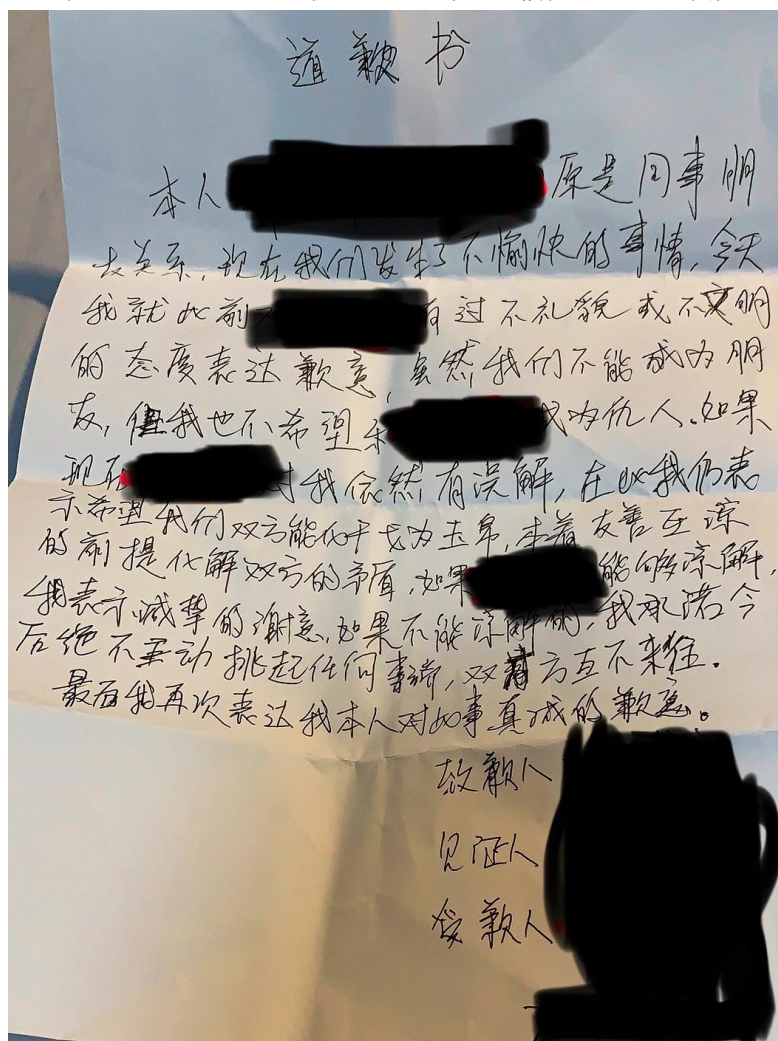 道歉书
本人 原是同事朋
友关系,现在我们发生了不愉快的事情,今天
我就此前对 有过不礼貌或不文明
的态度表达歉意,虽然我们不能成为朋
友,但我也不希望 成为仇人.如果
现在 对我依然有误解,在此我仍表
示希望我们双方能化干戈为玉帛,本着友善互谅
的前提化解双方的矛盾,如果 能够谅解,
我表示诚挚的谢意,如果不能谅解的,我承诺今
后绝不主动挑起任何事端,双方互不来往.
最后我再次表达我本人对此事真诚的歉意。
致歉人
见证人
受歉人